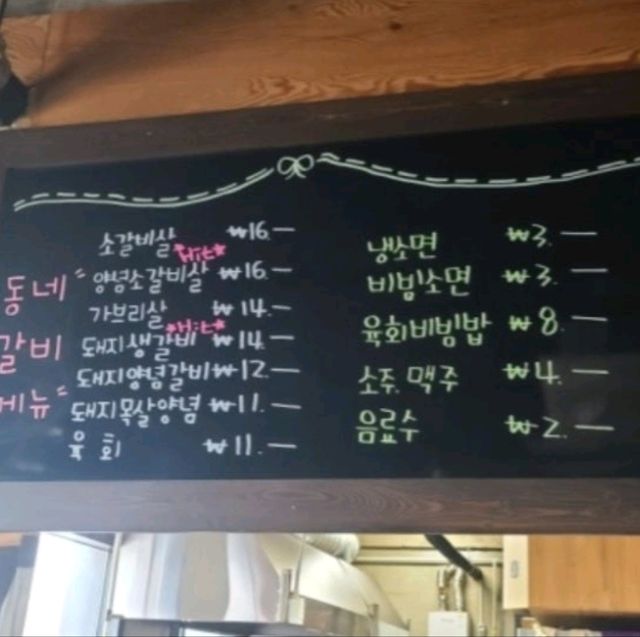 동네
갈비
메뉴
소갈비살 ₩16.—
*Hit*
양념소갈비살 ₩16.—
가브리살 ₩14.—
*Hit*
돼지생갈비 ₩14.—
돼지양념갈비 ₩12.—
돼지목살양념 ₩11.—
육회 ₩11.—
냉소면 ₩3.—
비빔소면 ₩3.—
육회비빔밥 ₩8.—
소주.맥주 ₩4.—
음료수 ₩2.—